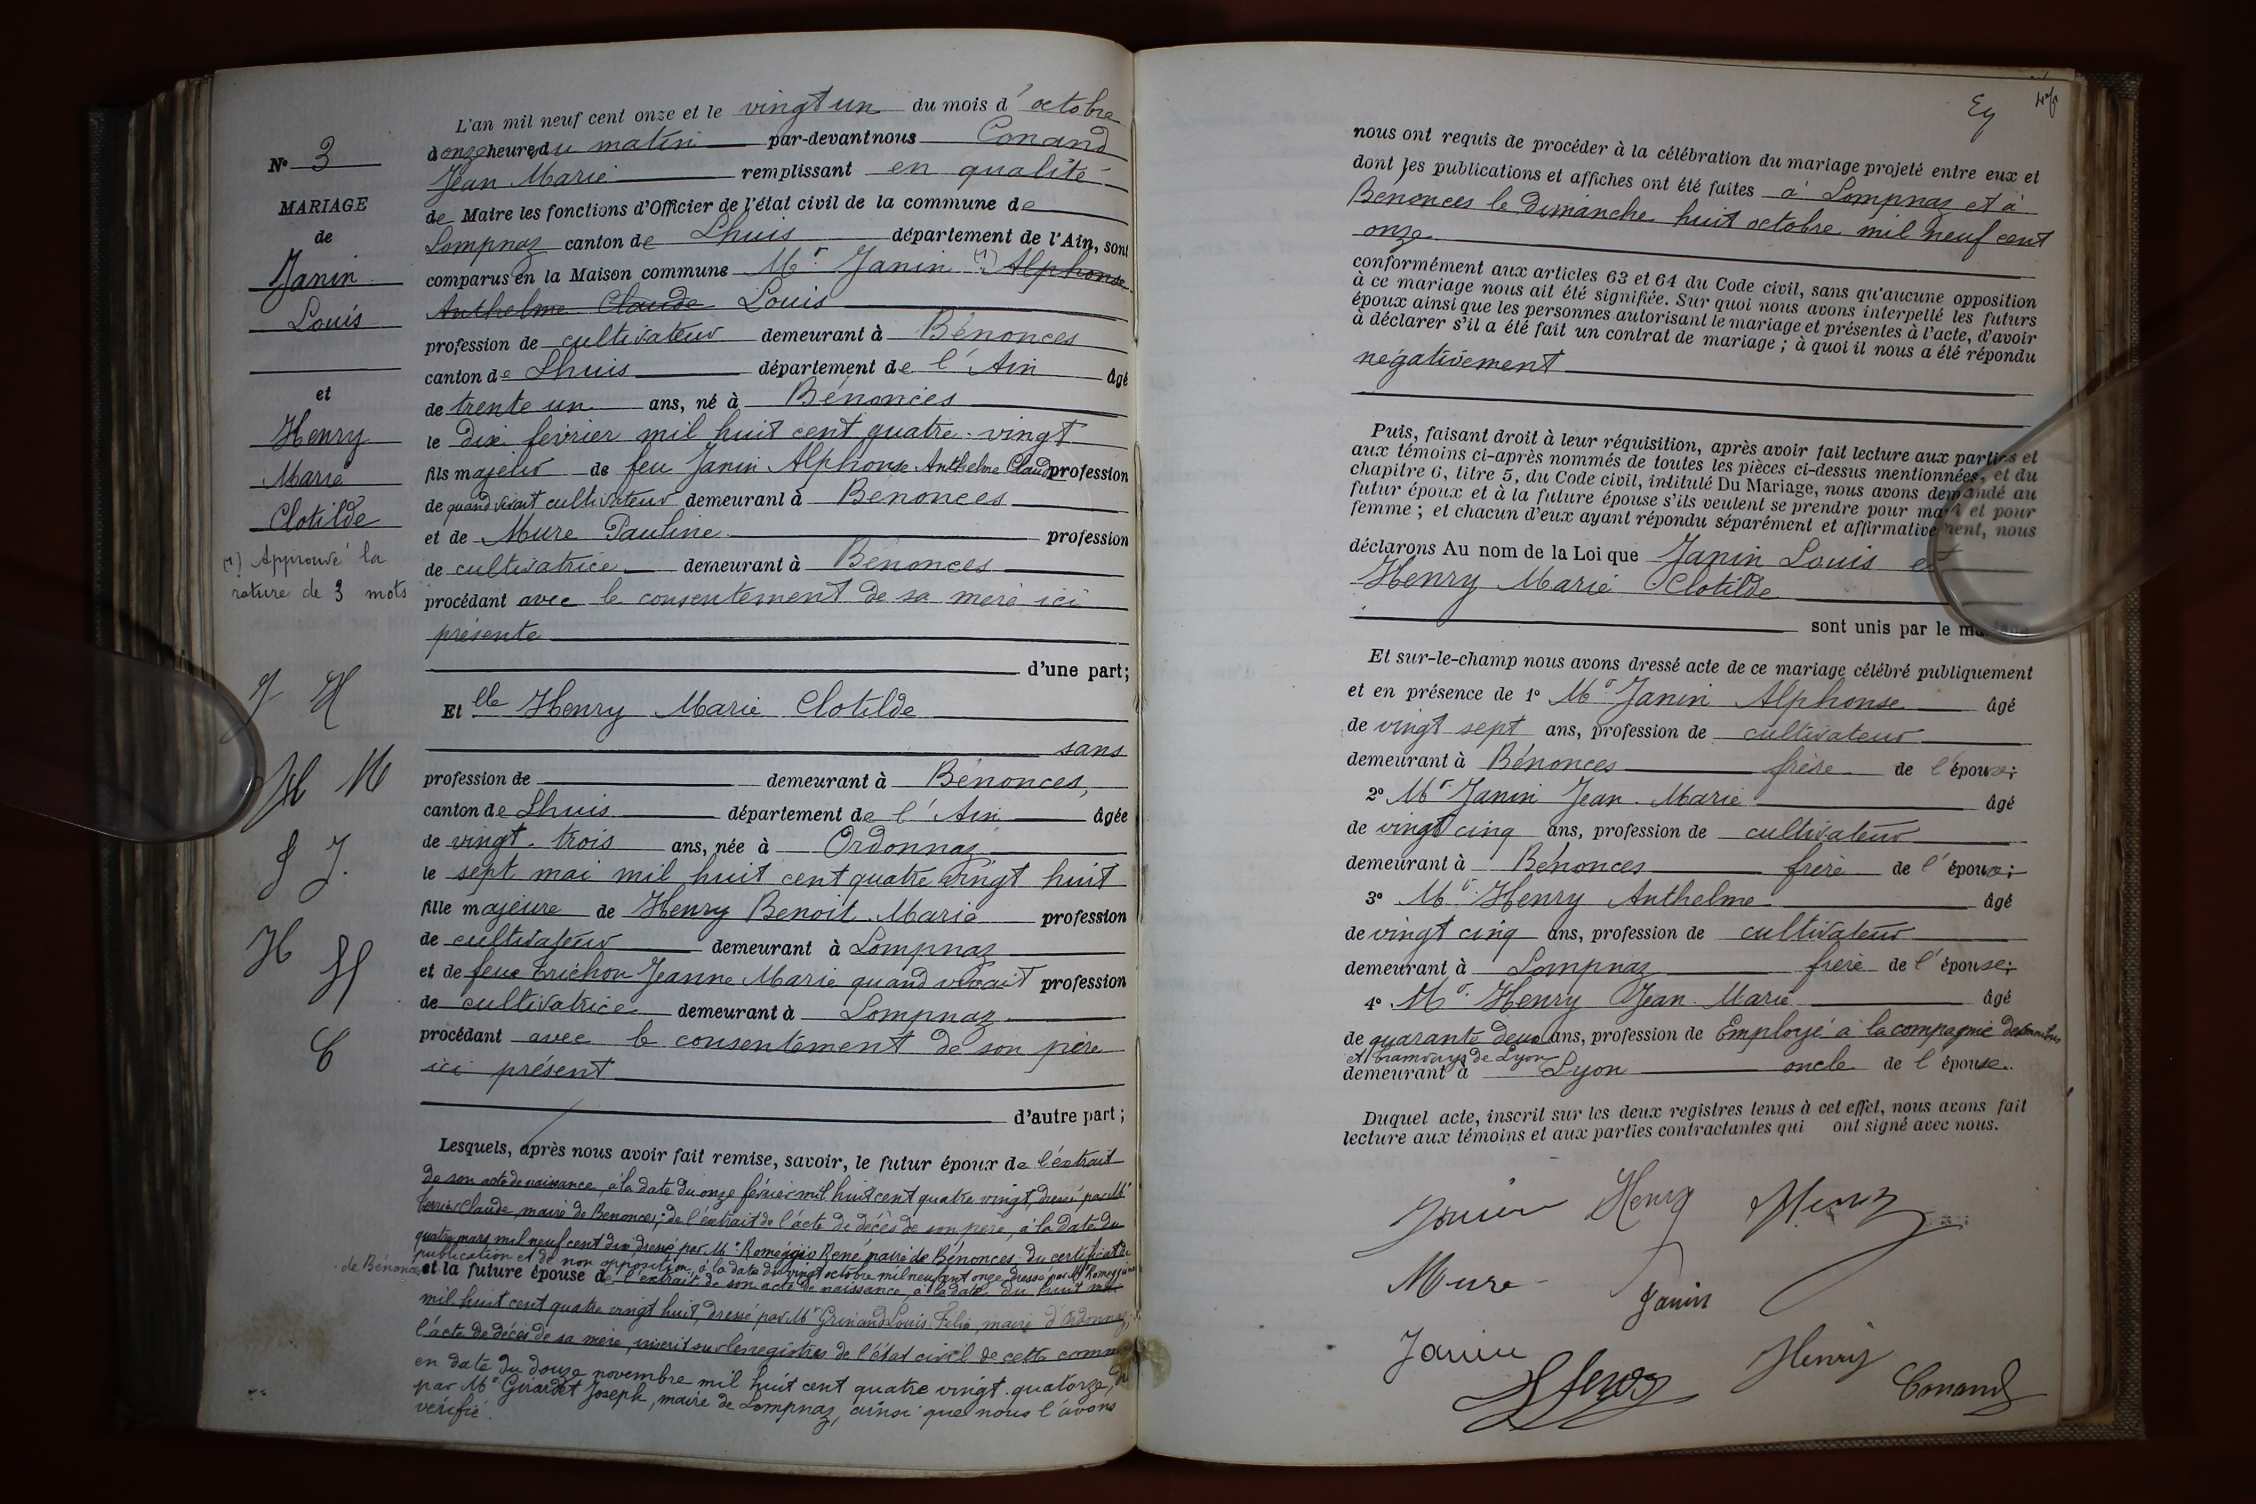 L'an mil neuf cent onze et le vingt un du mois d'octobre
à onze heures du matin par-devant nous Conand
Jean Marie remplissant en qualité
de Maire les fonctions d'Officier de l'état civil de la commune de
Lompnaz canton de Lhuis département de l'Ain, sont
comparus en la Maison commune Mr Janin (1) Alphonse
Anthelme Claude Louis
profession de cultivateur demeurant à Bénonces
canton de Lhuis département de l'Ain âgé
de trente un ans, né à Bénonces
le dix février mil huit cent quatre-vingt
fils majeur de feu Janin Alphonse Anthelme Claude profession
de quand vivait cultivateur demeurant à Bénonces
et de Mure Pauline profession
de cultivatrice demeurant à Bénonces
procédant avec le consentement de sa mère ici
présente
d'une part;
Et elle Henry Marie Clotilde
sans
profession de demeurant à Bénonces,
canton de Lhuis département de l'Ain âgée
de vingt-trois ans, née à Ordonnaz
le sept mai mil huit cent quatre vingt huit
fille majeure de Henry Benoit Marie profession
de cultivateur demeurant à Lompnaz
et de feue Trichon Jeanne Marie quand vivait profession
de cultivatrice demeurant à Lompnaz
procédant avec le consentement de son père
ici présent
d'autre part;
Lesquels, après nous avoir fait remise, savoir, le futur époux de l'extrait
de son acte de naissance, à la date du onze février mil huit cent quatre vingt, dressé par Mr
Claude, maire de Bénonces; de l'extrait de l'acte de décès de son père, à la date du
quatre mars mil neuf cent dix, dressé par Mr Roméggio René, maire de Bénonces, du certificat de
publication et de non opposition, à la date du vingt octobre mil neuf cent onze dressé par Mr
de Bénonces
et la future épouse de l'extrait de son acte de naissance, à la date du huit mai
mil huit cent quatre vingt huit, dressé par Mr Louis Félix, maire d'Ordonnaz;
l'acte de décès de sa mère, inscrit sur les registres de l'état civil de cette commune
en date du douze novembre mil huit cent quatre vingt-quatorze,
par Mr Girardet Joseph, maire de Lompnaz, ainsi que nous l'avons
vérifié.
No 3
MARIAGE
de
Janin
Louis
et
Henry
Marie
Clotilde
(1) Approuvé la
rature de 3 mots
J H
H M
J J.
H H
C
nous ont requis de procéder à la célébration du mariage projeté entre eux et
dont les publications et affiches ont été faites à Lompnaz et à
Bénonces le dimanche huit octobre mil neuf cent
onze
conformément aux articles 63 et 64 du Code civil, sans qu'aucune opposition
à ce mariage nous ait été signifiée. Sur quoi nous avons interpellé les futurs
époux ainsi que les personnes autorisant le mariage et présentes à l'acte, d'avoir
à déclarer s'il a été fait un contrat de mariage; à quoi il nous a été répondu
négativement
Puis, faisant droit à leur réquisition, après avoir fait lecture aux parties et
aux témoins ci-après nommés de toutes les pièces ci-dessus mentionnées, et du
chapitre 6, titre 5, du Code civil, intitulé Du Mariage, nous avons demandé au
futur époux et à la future épouse s'ils veulent se prendre pour mari et pour
femme; et chacun d'eux ayant répondu séparément et affirmativement, nous
déclarons Au nom de la Loi que Janin Louis et
Henry Marie Clotilde
sont unis par le mariage
Et sur-le-champ nous avons dressé acte de ce mariage célébré publiquement
et en présence de 1o Mr Janin Alphonse âgé
de vingt sept ans, profession de cultivateur
demeurant à Bénonces frère de l'époux;
2o Mr Janin Jean-Marie âgé
de vingt cinq ans, profession de cultivateur
demeurant à Bénonces frère de l'époux;
3o Mr Henry Anthelme âgé
de vingt cinq ans, profession de cultivateur
demeurant à Lompnaz frère de l'épouse;
4o Mr Henry Jean-Marie âgé
de quarante deux ans, profession de Employé à la compagnie des omnibus
et tramways de Lyon
demeurant à Lyon oncle de l'épouse.
Duquel acte, inscrit sur les deux registres tenus à cet effet, nous avons fait
lecture aux témoins et aux parties contractantes qui ont signé avec nous.
Janin Henry Henry
Mure Janin
Janin Henry
Henry Conand